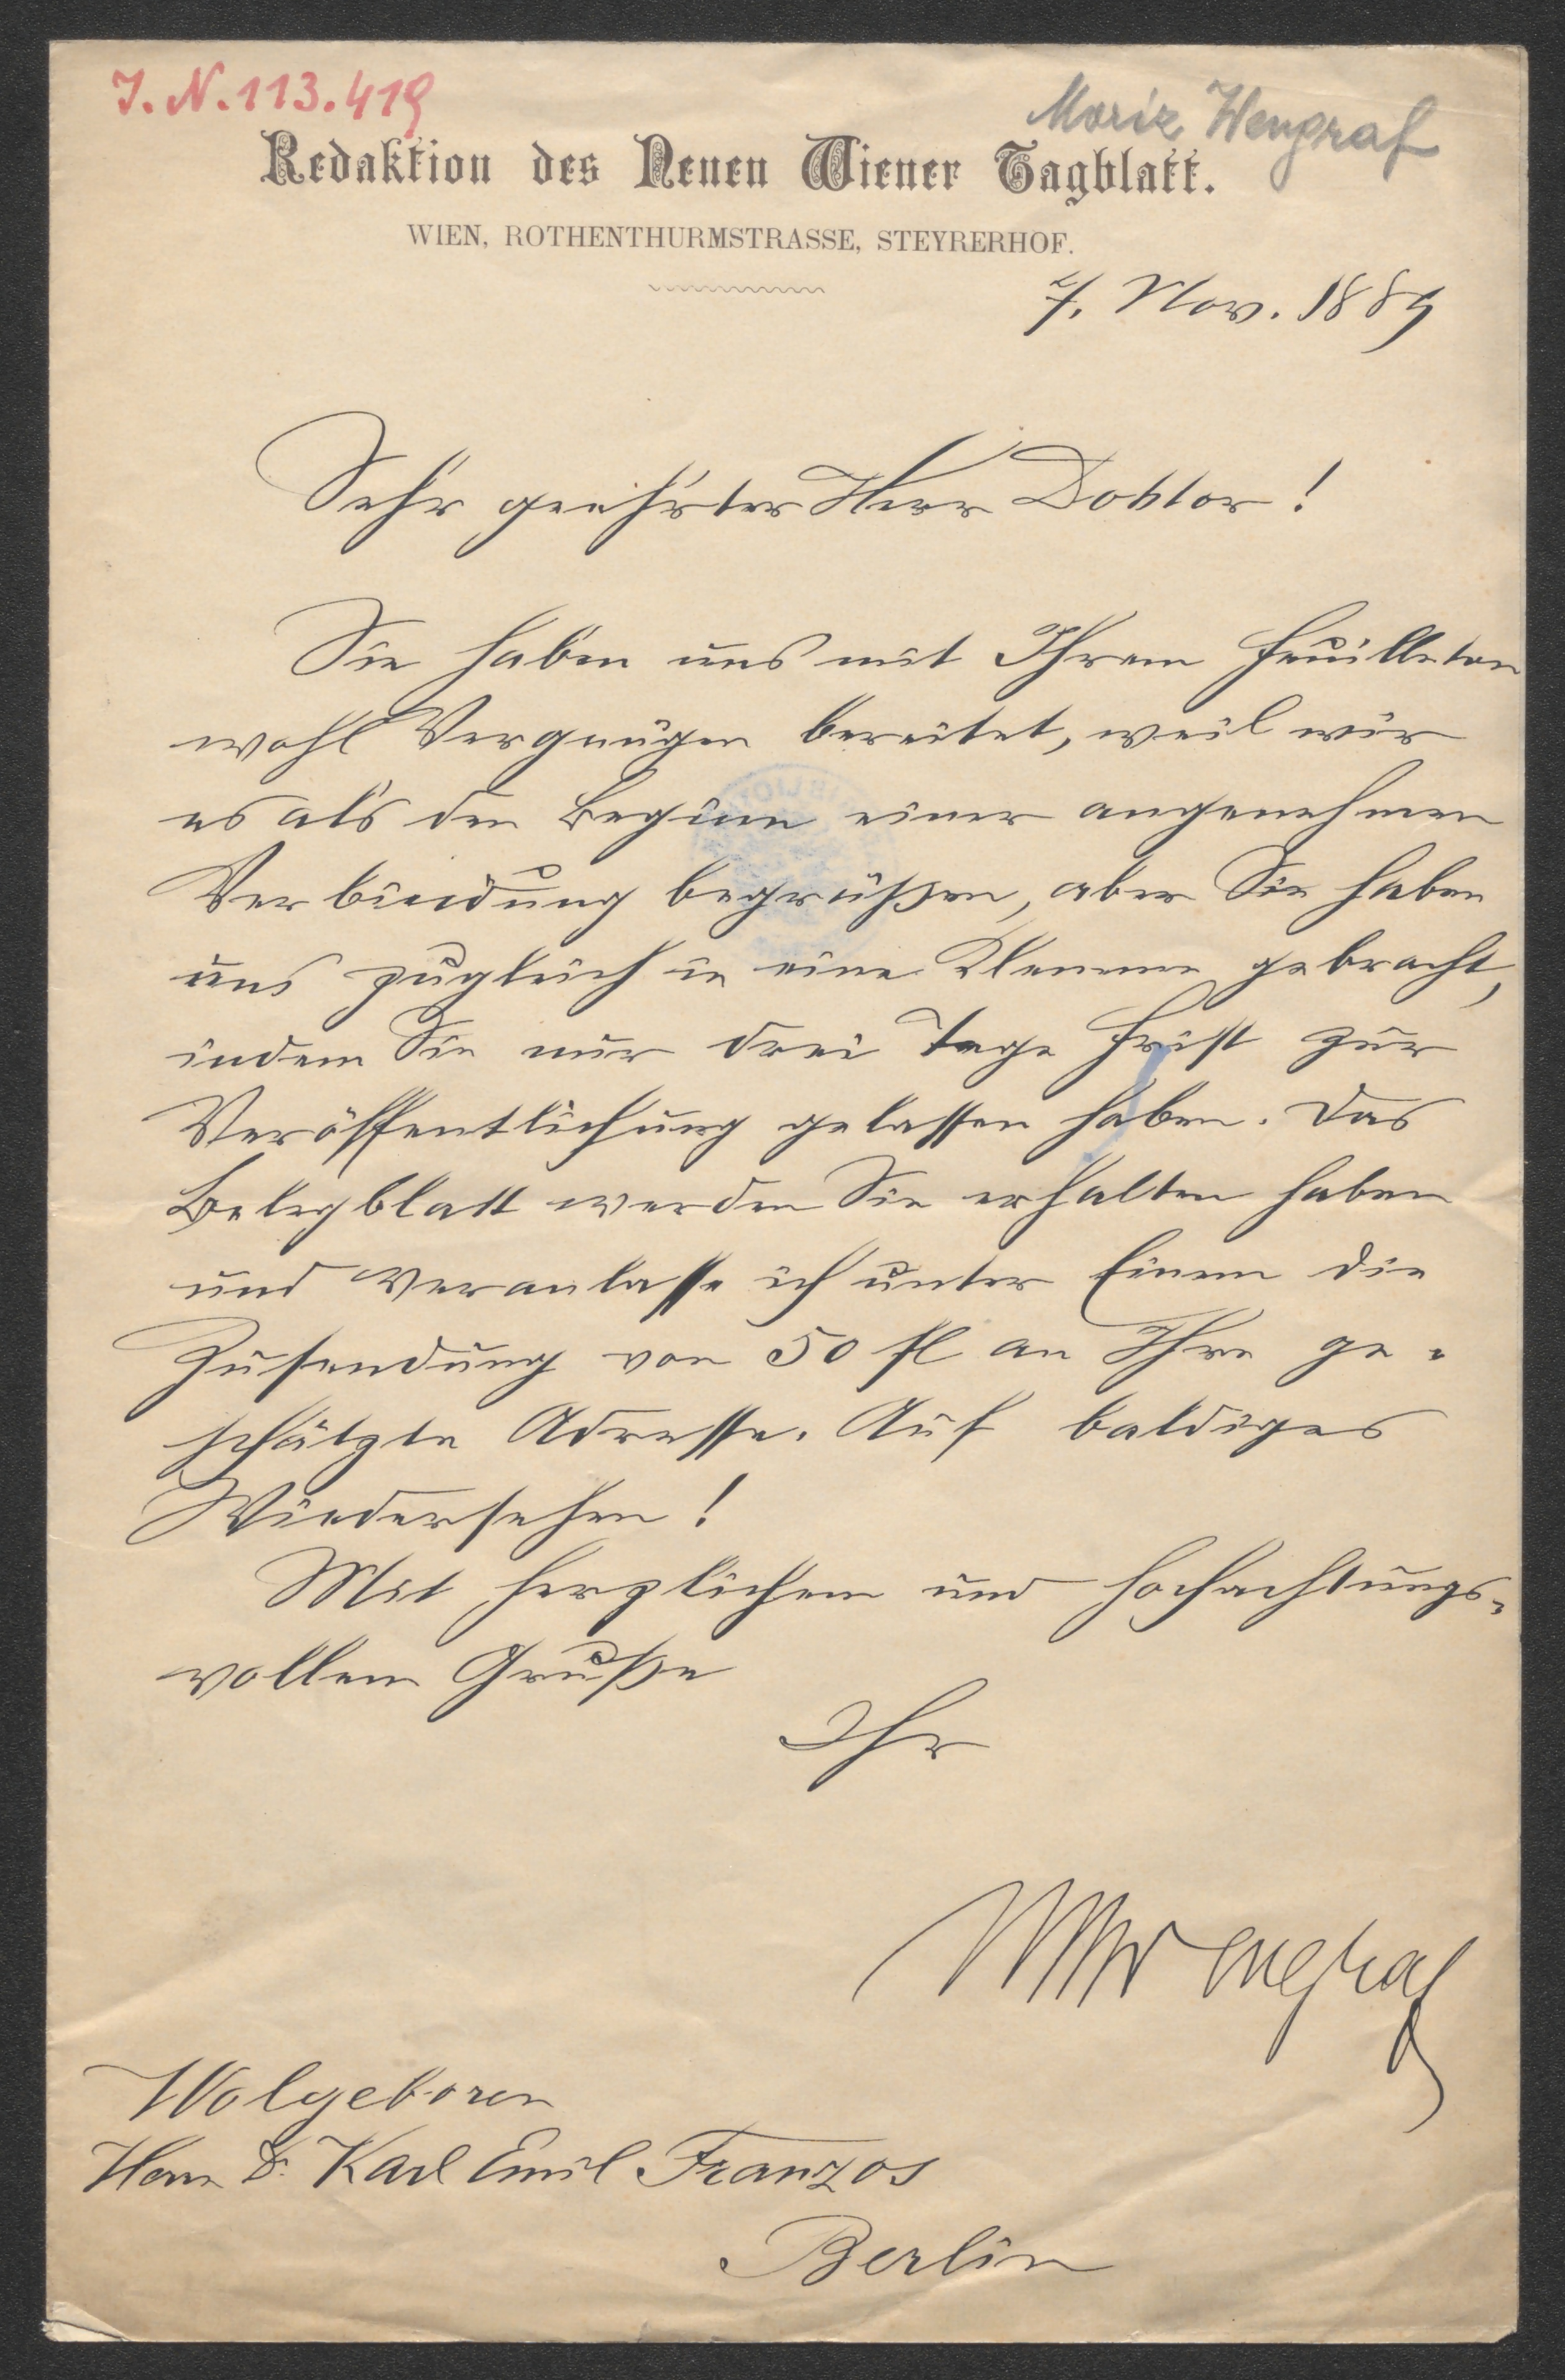 J. N. 113.419
Moriz Wengraf
Redaktion des Neuen Wiener Tagblatt.
WIEN, ROTHENTHURMSTRASSE, STEYRERHOF.
7. Nov. 1889
Sehr geehrter Herr Doktor!
Sie haben uns mit Ihrem Feuilleton
wohl Vergnügen bereitet, weil wir
es als den Beginn einer angenehmen
Verbindung begrüßen, aber Sie haben
uns zugleich in eine Klemme gebracht,
indem Sie nur drei Tage Frist zur
Veröffentlichung gelassen haben. Das
Belegblatt werden Sie erhalten haben
und veranlasse ich unter Einem die
Zusendung von 50 fl an Ihre ge-
schätzte Adresse. Auf baldiges
Wiedersehen!
Mit herzlichem und hochachtungs-
vollem Gruße
Ihr
MWengraf
Wolgeboren
Herrn Dr. Karl Emil Franzos
Berlin